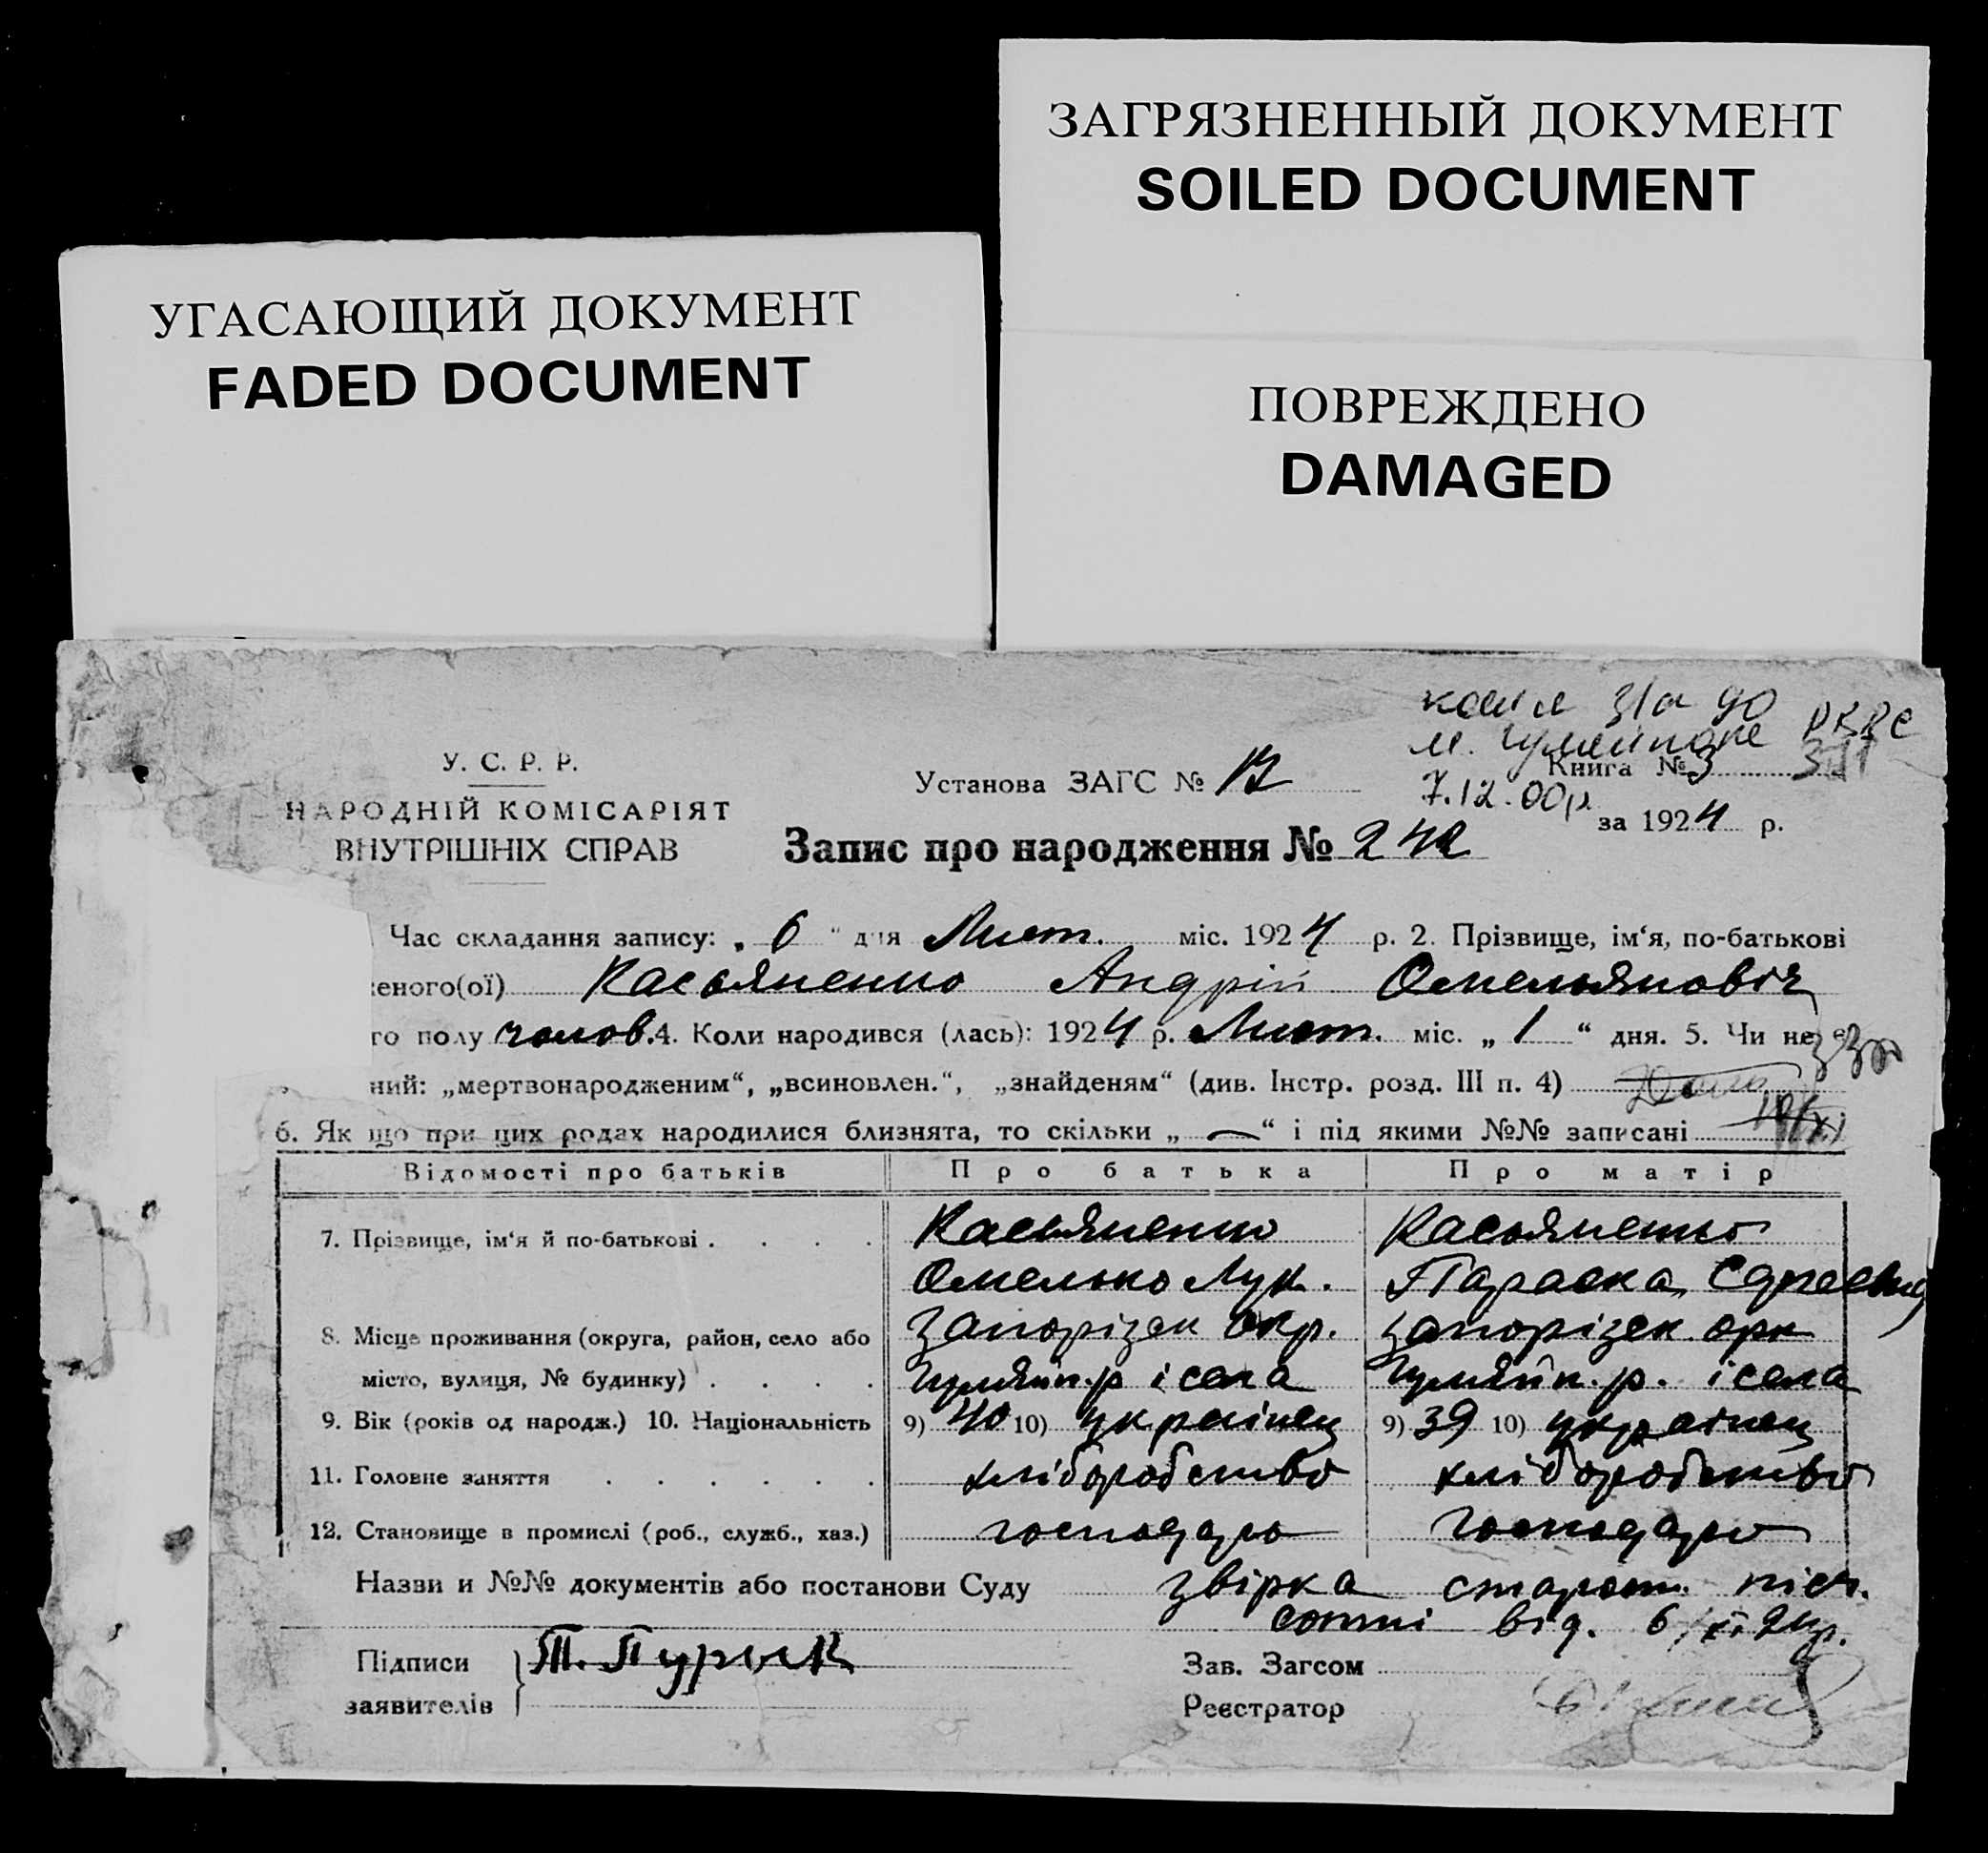 ЗАГРЯЗНЕННЫЙ ДОКУМЕНТ
SOILED DOCUMENT
УГАСАЮЩИЙ ДОКУМЕНТ
FADED DOCUMENT
ПОВРЕЖДЕНО
DAMAGED
копія з/а до
м. Гуляйполе
7.12.00р
У. С. Р. Р.
НАРОДНІЙ КОМІСАРІЯТ
ВНУТРІШНІХ СПРАВ
Установа ЗАГС №
Книга № 3
за 1924 р.
Запис про народження № 242
Час складання запису: „ 6 “ дня Лист. міс. 1924 р. 2. Прізвище, ім‘я, по-батькові
еного(ої) Касьяненко Андрій Омельянович
го полу чолов. 4. Коли народився (лась): 1924 р. Лист. міс. „ 1 “ дня. 5. Чи не є
ний: „мертвонародженим“, „всиновлен.“, „знайденям“ (див. Інстр. розд. III п. 4)
6. Як що при цих родах народилися близнята, то скільки „ — “ і під якими №№ записані
Відомості про батьків Про батька Про матір
7. Прізвище, ім‘я й по-батькові . . . . Касьяненко Касьяненко
Омелько Лук. Параска
8. Місце проживання (округа, район, село або Запорізск окр. Запорізск окр
місто, вулиця, № будинку) . . . . Гуляйп. р і села Гуляйп. р. і села
9. Вік (років од народж.) 10. Національність 9) 40 10) українец 9) 39 10) українец
11. Головне заняття . . . . . . хліборобство хліборобство
12. Становище в промислі (роб., служб., хаз.) господарь господарь
Назви и №№ документів або постанови Суду звірка старост.
сотні від. 6/XI 24р.
Підписи
заявителів
Зав. Загсом
Реєстратор